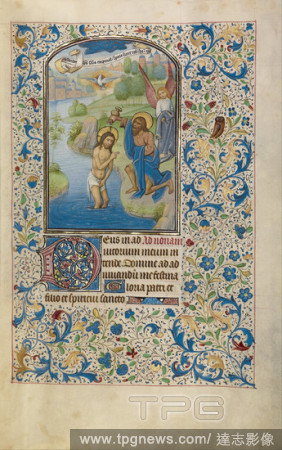 Deus in ad Ad nonam
iutorium meum in
tende. Domine ad ad
iuuandum me festina
Gloria patri et
filio et spiritui sancto
TPG
www.tpgnews.com/ 達志影像